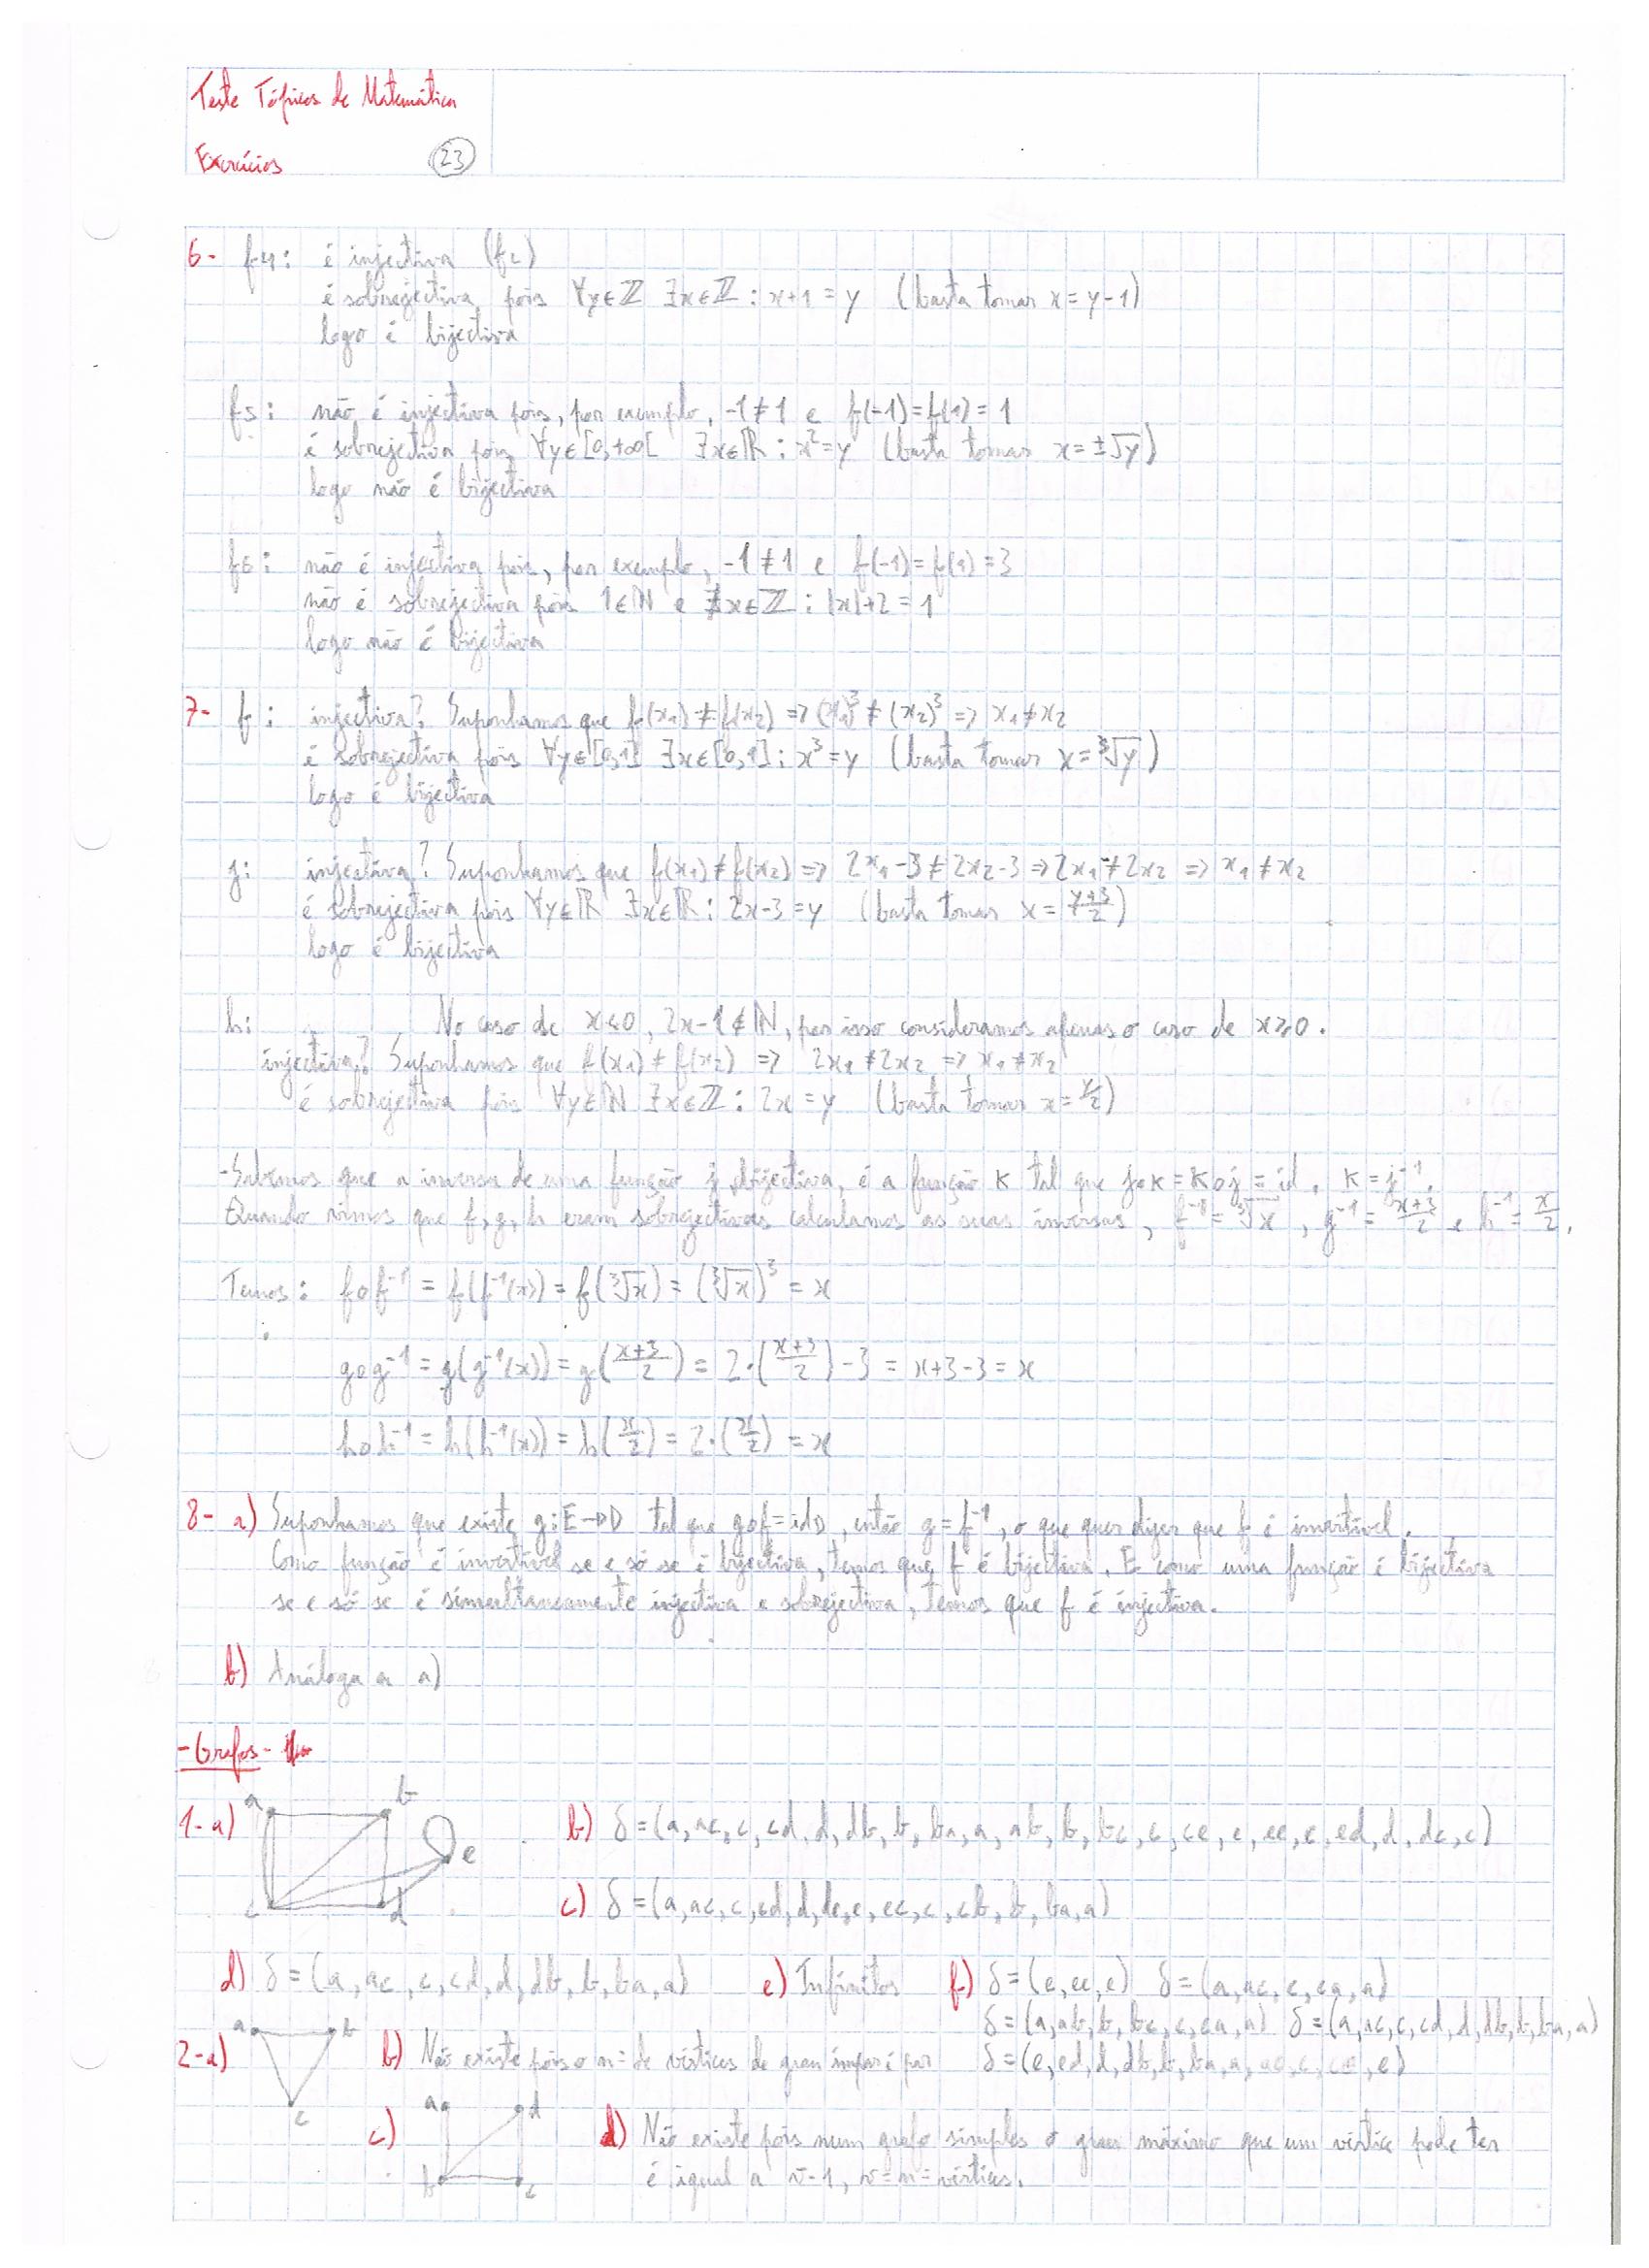 Teste Tópicos de Matemática
Exercícios 23
6- f4: é injectiva (f2)
é sobrejectiva, pois ∀y∈ℤ ∃x∈ℤ : x+1=y (basta tomar x=y-1)
logo é bijectiva
f5: não é injectiva pois, por exemplo, -1≠1 e f(-1)=f(1)=1
é sobrejectiva pois, ∀y∈[0,+∞[ ∃x∈ℝ : x²=y (basta tomar x=±√y)
logo não é bijectiva
f6: não é injectiva pois, por exemplo, -1≠1 e f(-1)=f(1)=3
não é sobrejectiva pois 1∈ℕ e ∄x∈ℤ : |x|+2=1
logo não é bijectiva
7- f: injectiva? Suponhamos que f(x1)≠f(x2) => (x1)³≠(x2)³ => x1≠x2
é sobrejectiva pois ∀y∈[0,1] ∃x∈[0,1] : x³=y (basta tomar x=∛y)
logo é bijectiva
g: injectiva? Suponhamos que f(x1)≠f(x2) => 2x1-3≠2x2-3 => 2x1≠2x2 => x1≠x2
é sobrejectiva pois ∀y∈ℝ ∃x∈ℝ : 2x-3=y (basta tomar x=(y+3)/2)
logo é bijectiva
h: No caso de x<0, 2x-1∉ℕ, por isso consideramos apenas o caso de x≥0.
injectiva? Suponhamos que f(x1)≠f(x2) => 2x1≠2x2 => x1≠x2
é sobrejectiva pois ∀y∈ℕ ∃x∈ℤ : 2x=y (basta tomar x=y/2)
-Sabemos que a inversa de uma função j, bijectiva, é a função K tal que j∘K=K∘j=id, K=j⁻¹.
Quando vimos que f,g,h eram sobrejectivas calculamos as suas inversas, f⁻¹=∛x, g⁻¹=(x+3)/2 e h⁻¹=x/2.
Temos: f∘f⁻¹=f(f⁻¹(x))=f(∛x)=(∛x)³=x
g∘g⁻¹=g(g⁻¹(x))=g((x+3)/2)=2·((x+3)/2)-3=x+3-3=x
h∘h⁻¹=h(h⁻¹(x))=h(x/2)=2·(x/2)=x
8- a) Suponhamos que existe g:E→D tal que g∘f=idD, então g=f⁻¹, o que quer dizer que f é invertível.
Como função é invertível se e só se é bijectiva, temos que f é bijectiva. E como uma função é bijectiva
se e só se é simultaneamente injectiva e sobrejectiva, temos que f é injectiva.
b) Análoga a a)
-Grafos-
1-a) a b c d e b) δ=(a,ac,c,cd,d,db,b,ba,a,ab,b,bc,c,ce,e,ee,e,ed,d,dc,c)
c) δ=(a,ac,c,cd,d,de,e,ec,c,cb,b,ba,a)
d) δ=(a,ac,c,cd,d,db,b,ba,a) e) Infinitos f) δ=(e,ee,e) δ=(a,ac,c,ca,a)
δ=(a,ab,b,bc,c,ca,a) δ=(a,ac,c,cd,d,db,b,ba,a)
2-a) a b c b) Não existe pois o nº de vértices de grau ímpar é par δ=(e,ed,d,db,b,ba,a,ac,c,ce,e)
c) a d b c d) Não existe pois num grafo simples o grau máximo que um vértice pode ter
é igual a v-1, v=nº vértices.